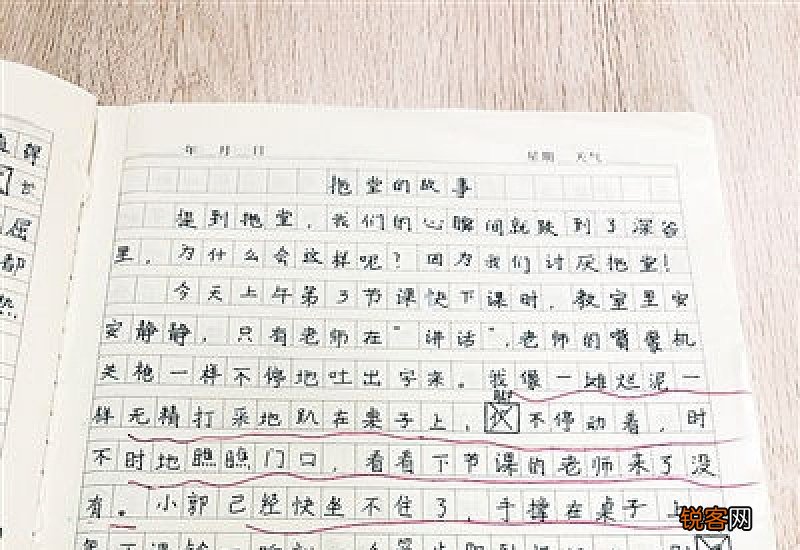 年 月 日 星期 天气
拖堂的故事
提到拖堂，我们的心瞬间就跌到了深谷
里，为什么会这样呢？因为我们讨厌拖堂！
今天上午第3节课快下课时，教室里安
安静静，只有老师在“讲话”，老师的嘴像机
关枪一样不停地吐出字来。我像一摊烂泥一
样无精打采地趴在桌子上，脚不停动着，时
不时地瞧瞧门口，看看下节课的老师来了没
有。小郭已经快坐不住了，手撑在桌子上
屈
都
锐客网